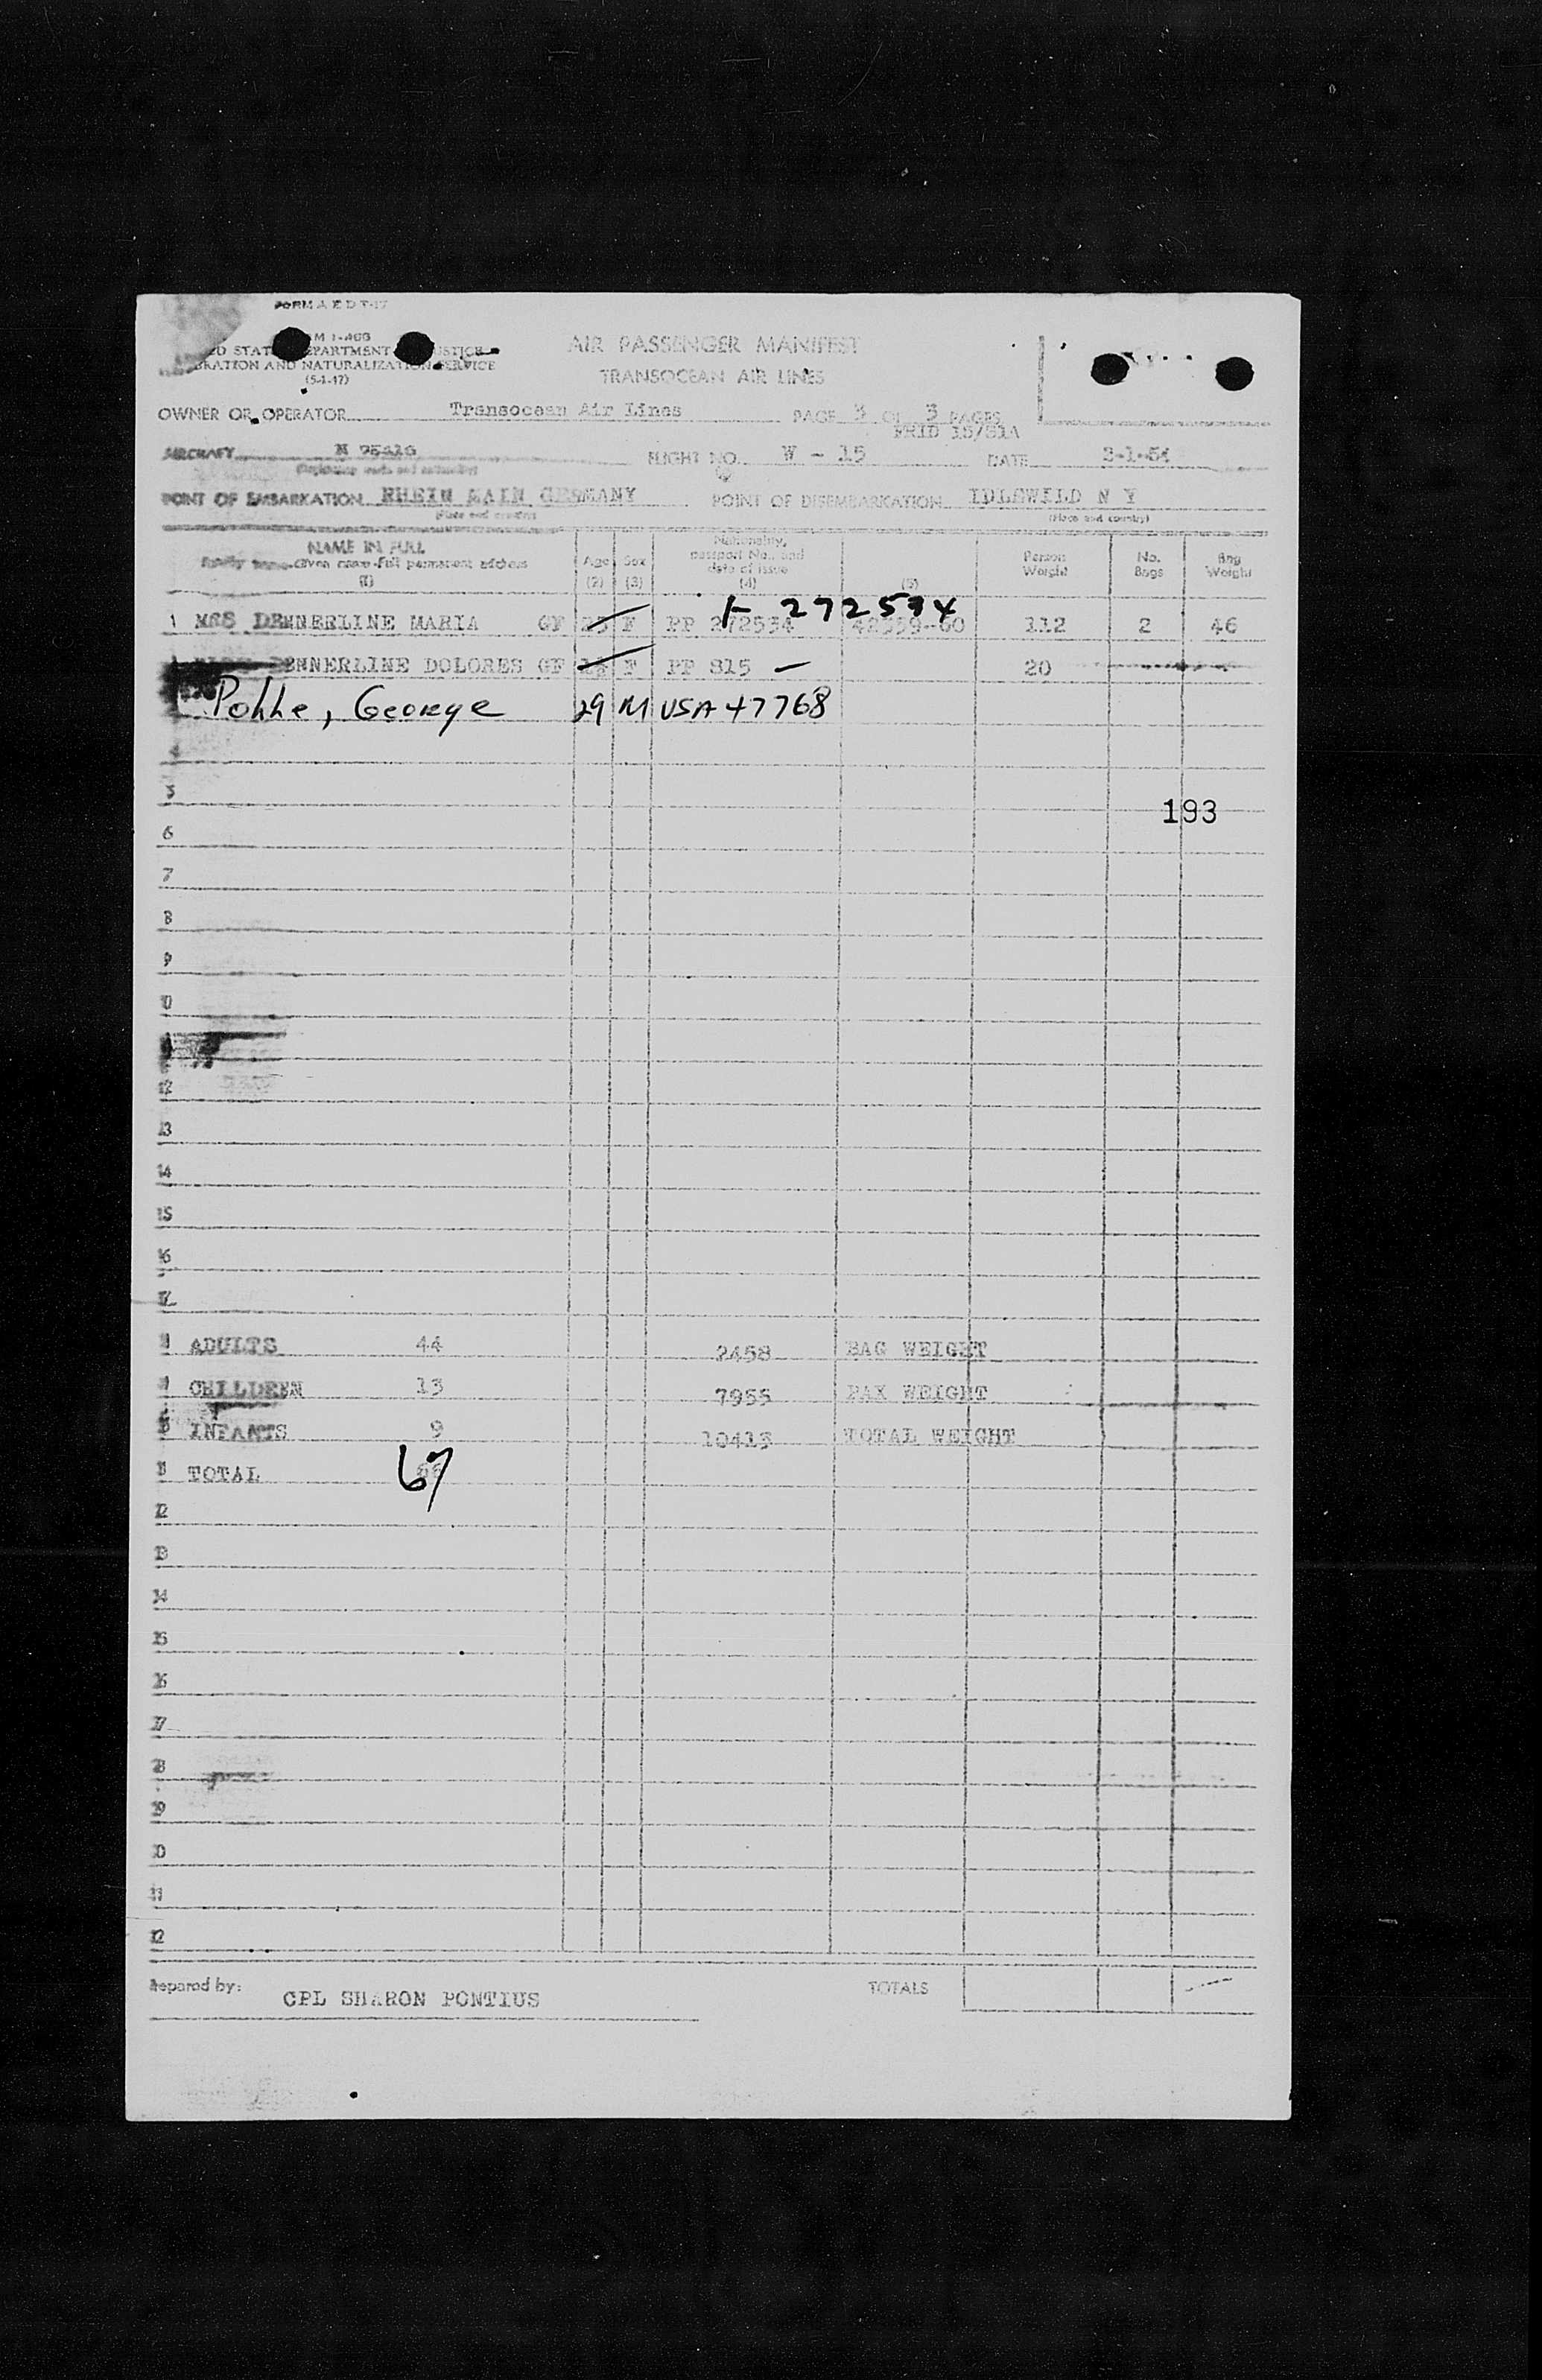 FORM A E D T-17
M I-466
ED STAT EPARTMENT USTICE
RATION AND NATURALIZATION SERVICE
(5-1-47)
AIR PASSENGER MANIFEST
TRANSOCEAN AIR LINES
OWNER OR OPERATOR Transocean Air Lines PAGE 3 OF 3 PAGES
AIRCRAFT FLIGHT NO. W - 15 DATE 3-1-54
POINT OF EMBARKATION RHEIN MAIN GERMANY POINT OF DISEMBARKATION IDLEWILD N Y
(Place and country) (Place and country)
NAME IN FULL Age Sex Nationality, passport No., and date of issue Person Weight No. Bags Bag Weight
Family name-Given name-Full permanent address
(1) (2) (3) (4) (5)
1 MRS DENNERLINE MARIA GF F PP 272534 42559-60 112 2 46
I- 272534
ENNERLINE DOLORES GF F PP 815 — 20
Pohhe, George 29 M USA 47768
4
5
193
6
7
8
9
10
12
13
14
15
16
17
ADULTS 44 2458 BAG WEIGHT
CHILDREN 13 7955 PAX WEIGHT
INFANTS 9 10413 TOTAL WEIGHT
TOTAL 67
22
23
24
25
26
27
28
29
30
31
32
Prepared by: CPL SHARON PONTIUS TOTALS